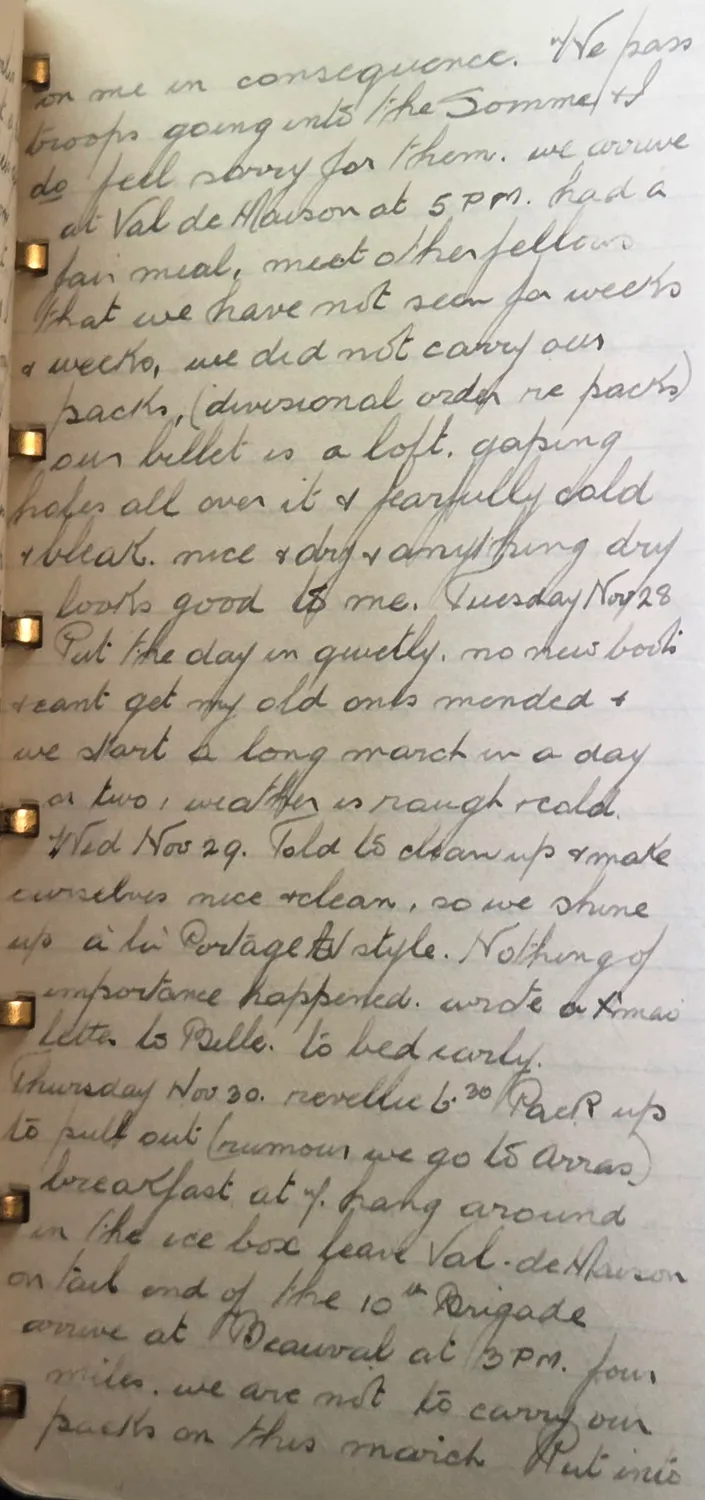 on me in consequence. We pass
troops going into the Somme & I
do feel sorry for them. we arrive
at Val de Maison at 5 PM. had a
fair meal, meet other fellows
that we have not seen for weeks
& weeks, we did not carry our
packs, (divisional order re packs)
our billet is a loft. gaping
holes all over it & fearfully cold
& bleak. nice & dry & anything dry
looks good to me. Tuesday Nov 28
Put the day in quietly. no new boots
& cant get my old ones mended &
we start a long march in a day
or two, weather is rough & cold.
Wed Nov 29. Told to clean up & make
ourselves nice & clean, so we shine
up à la Portage style. Nothing of
importance happened. wrote a Xmas
letter to Belle. to bed early.
Thursday Nov 30. revellie 6.30 Pack up
to pull out (rumour we go to Arras)
breakfast at 7. hang around
in the ice box leave Val-de Maison
on tail end of the 10th Brigade
arrive at Beauval at 3 PM. four
miles. we are not to carry our
packs on this march Put into